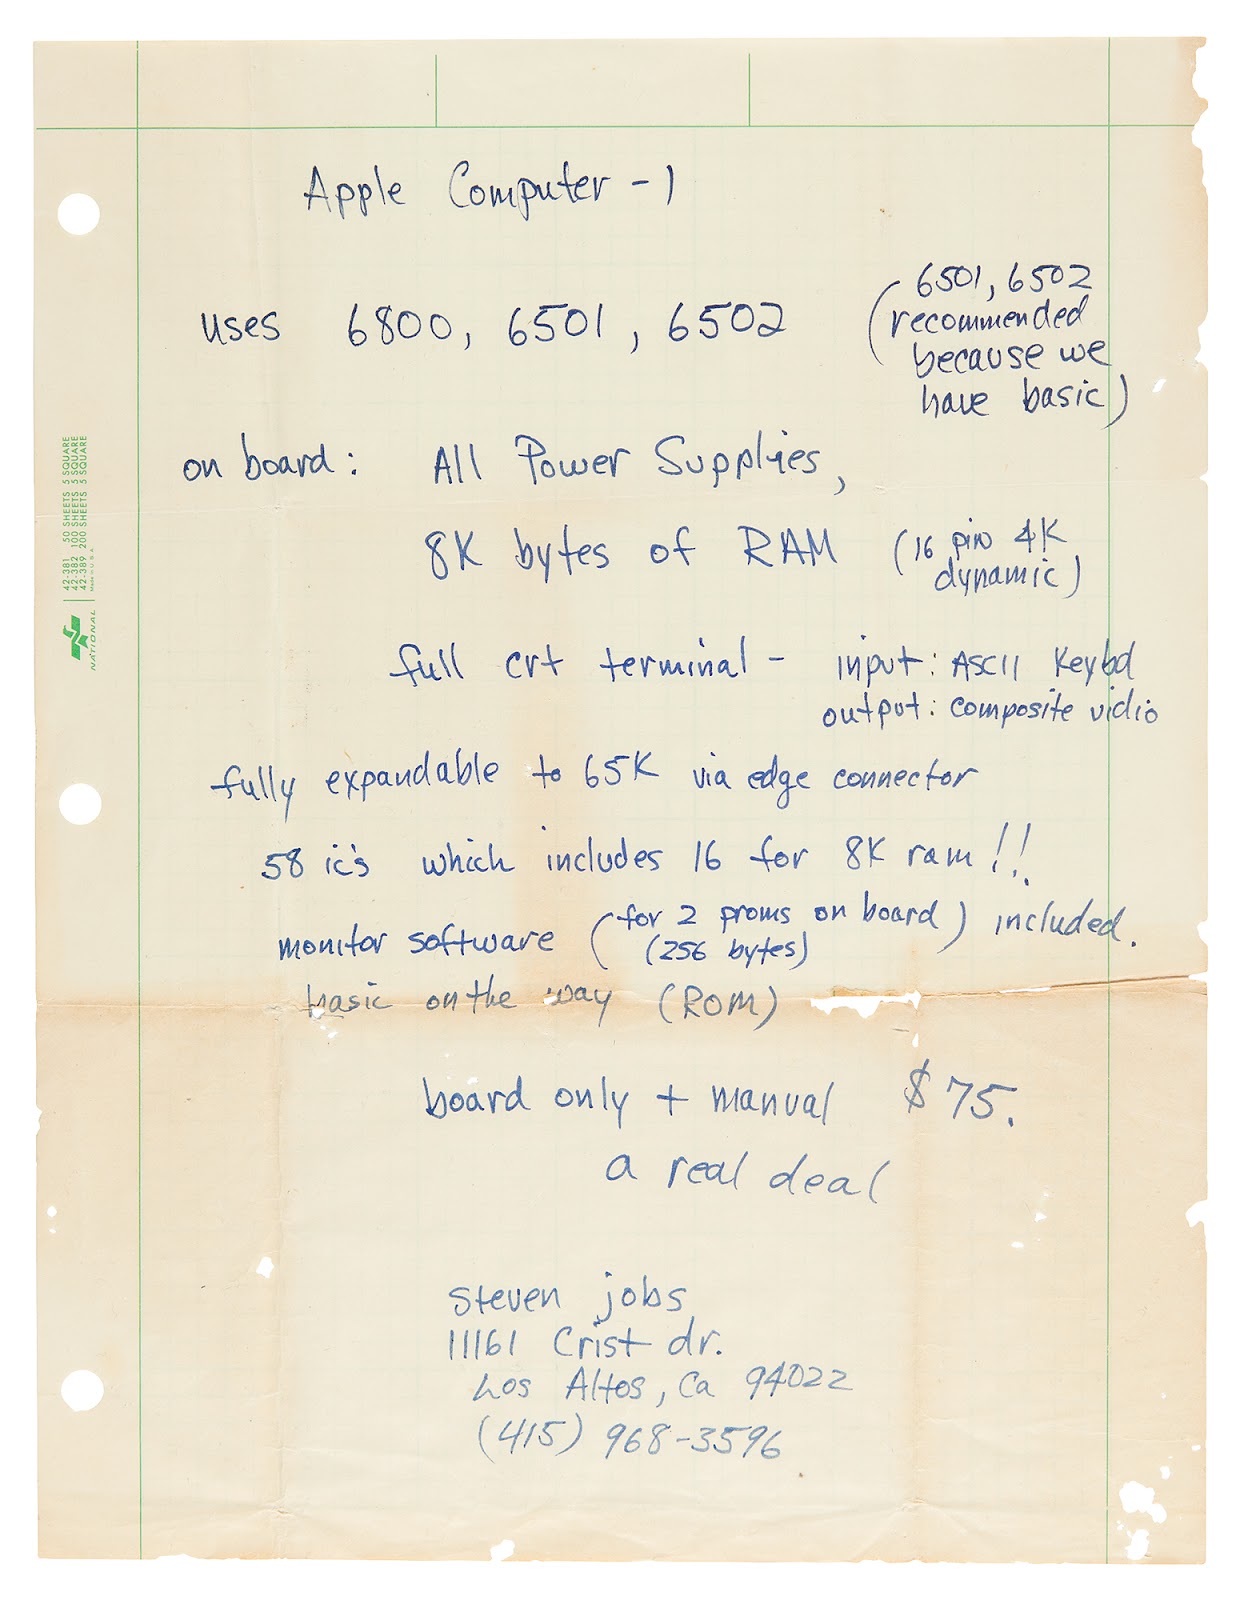 Apple Computer - 1
uses 6800, 6501, 6502
(6501, 6502
recommended
because we
have basic)
on board: All Power Supplies,
8K bytes of RAM (16 pin 4K
dynamic)
full crt terminal - input: ASCII Keybd
output: composite vidio
fully expandable to 65K via edge connector
58 ic's which includes 16 for 8K ram!!
monitor software (for 2 proms on board) included.
(256 bytes)
basic on the way (ROM)
board only + manual $75.
a real deal
steven jobs
11161 Crist dr.
Los Altos, Ca 94022
(415) 968-3596
42-381 50 SHEETS 5 SQUARE
42-382 100 SHEETS 5 SQUARE
42-389 200 SHEETS 5 SQUARE
Made in U.S.A.
NATIONAL